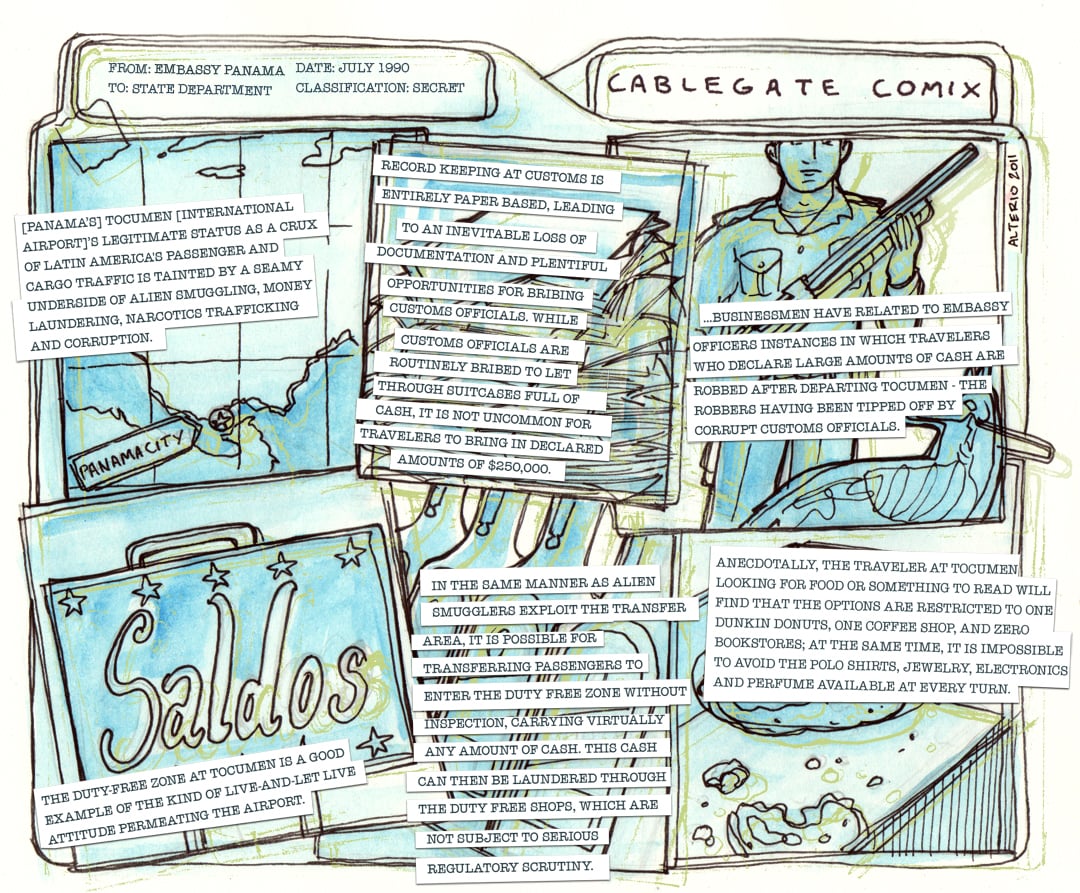 FROM: EMBASSY PANAMA DATE: JULY 1990
TO: STATE DEPARTMENT CLASSIFICATION: SECRET
CABLEGATE COMIX
[PANAMA'S] TOCUMEN [INTERNATIONAL
AIRPORT]'S LEGITIMATE STATUS AS A CRUX
OF LATIN AMERICA'S PASSENGER AND
CARGO TRAFFIC IS TAINTED BY A SEAMY
UNDERSIDE OF ALIEN SMUGGLING, MONEY
LAUNDERING, NARCOTICS TRAFFICKING
AND CORRUPTION.
PANAMA CITY
RECORD KEEPING AT CUSTOMS IS
ENTIRELY PAPER BASED, LEADING
TO AN INEVITABLE LOSS OF
DOCUMENTATION AND PLENTIFUL
OPPORTUNITIES FOR BRIBING
CUSTOMS OFFICIALS. WHILE
CUSTOMS OFFICIALS ARE
ROUTINELY BRIBED TO LET
THROUGH SUITCASES FULL OF
CASH, IT IS NOT UNCOMMON FOR
TRAVELERS TO BRING IN DECLARED
AMOUNTS OF $250,000.
ALTERIO 2011
...BUSINESSMEN HAVE RELATED TO EMBASSY
OFFICERS INSTANCES IN WHICH TRAVELERS
WHO DECLARE LARGE AMOUNTS OF CASH ARE
ROBBED AFTER DEPARTING TOCUMEN - THE
ROBBERS HAVING BEEN TIPPED OFF BY
CORRUPT CUSTOMS OFFICIALS.
Saldos
THE DUTY-FREE ZONE AT TOCUMEN IS A GOOD
EXAMPLE OF THE KIND OF LIVE-AND-LET LIVE
ATTITUDE PERMEATING THE AIRPORT.
IN THE SAME MANNER AS ALIEN
SMUGGLERS EXPLOIT THE TRANSFER
AREA, IT IS POSSIBLE FOR
TRANSFERRING PASSENGERS TO
ENTER THE DUTY FREE ZONE WITHOUT
INSPECTION, CARRYING VIRTUALLY
ANY AMOUNT OF CASH. THIS CASH
CAN THEN BE LAUNDERED THROUGH
THE DUTY FREE SHOPS, WHICH ARE
NOT SUBJECT TO SERIOUS
REGULATORY SCRUTINY.
ANECDOTALLY, THE TRAVELER AT TOCUMEN
LOOKING FOR FOOD OR SOMETHING TO READ WILL
FIND THAT THE OPTIONS ARE RESTRICTED TO ONE
DUNKIN DONUTS, ONE COFFEE SHOP, AND ZERO
BOOKSTORES; AT THE SAME TIME, IT IS IMPOSSIBLE
TO AVOID THE POLO SHIRTS, JEWELRY, ELECTRONICS
AND PERFUME AVAILABLE AT EVERY TURN.